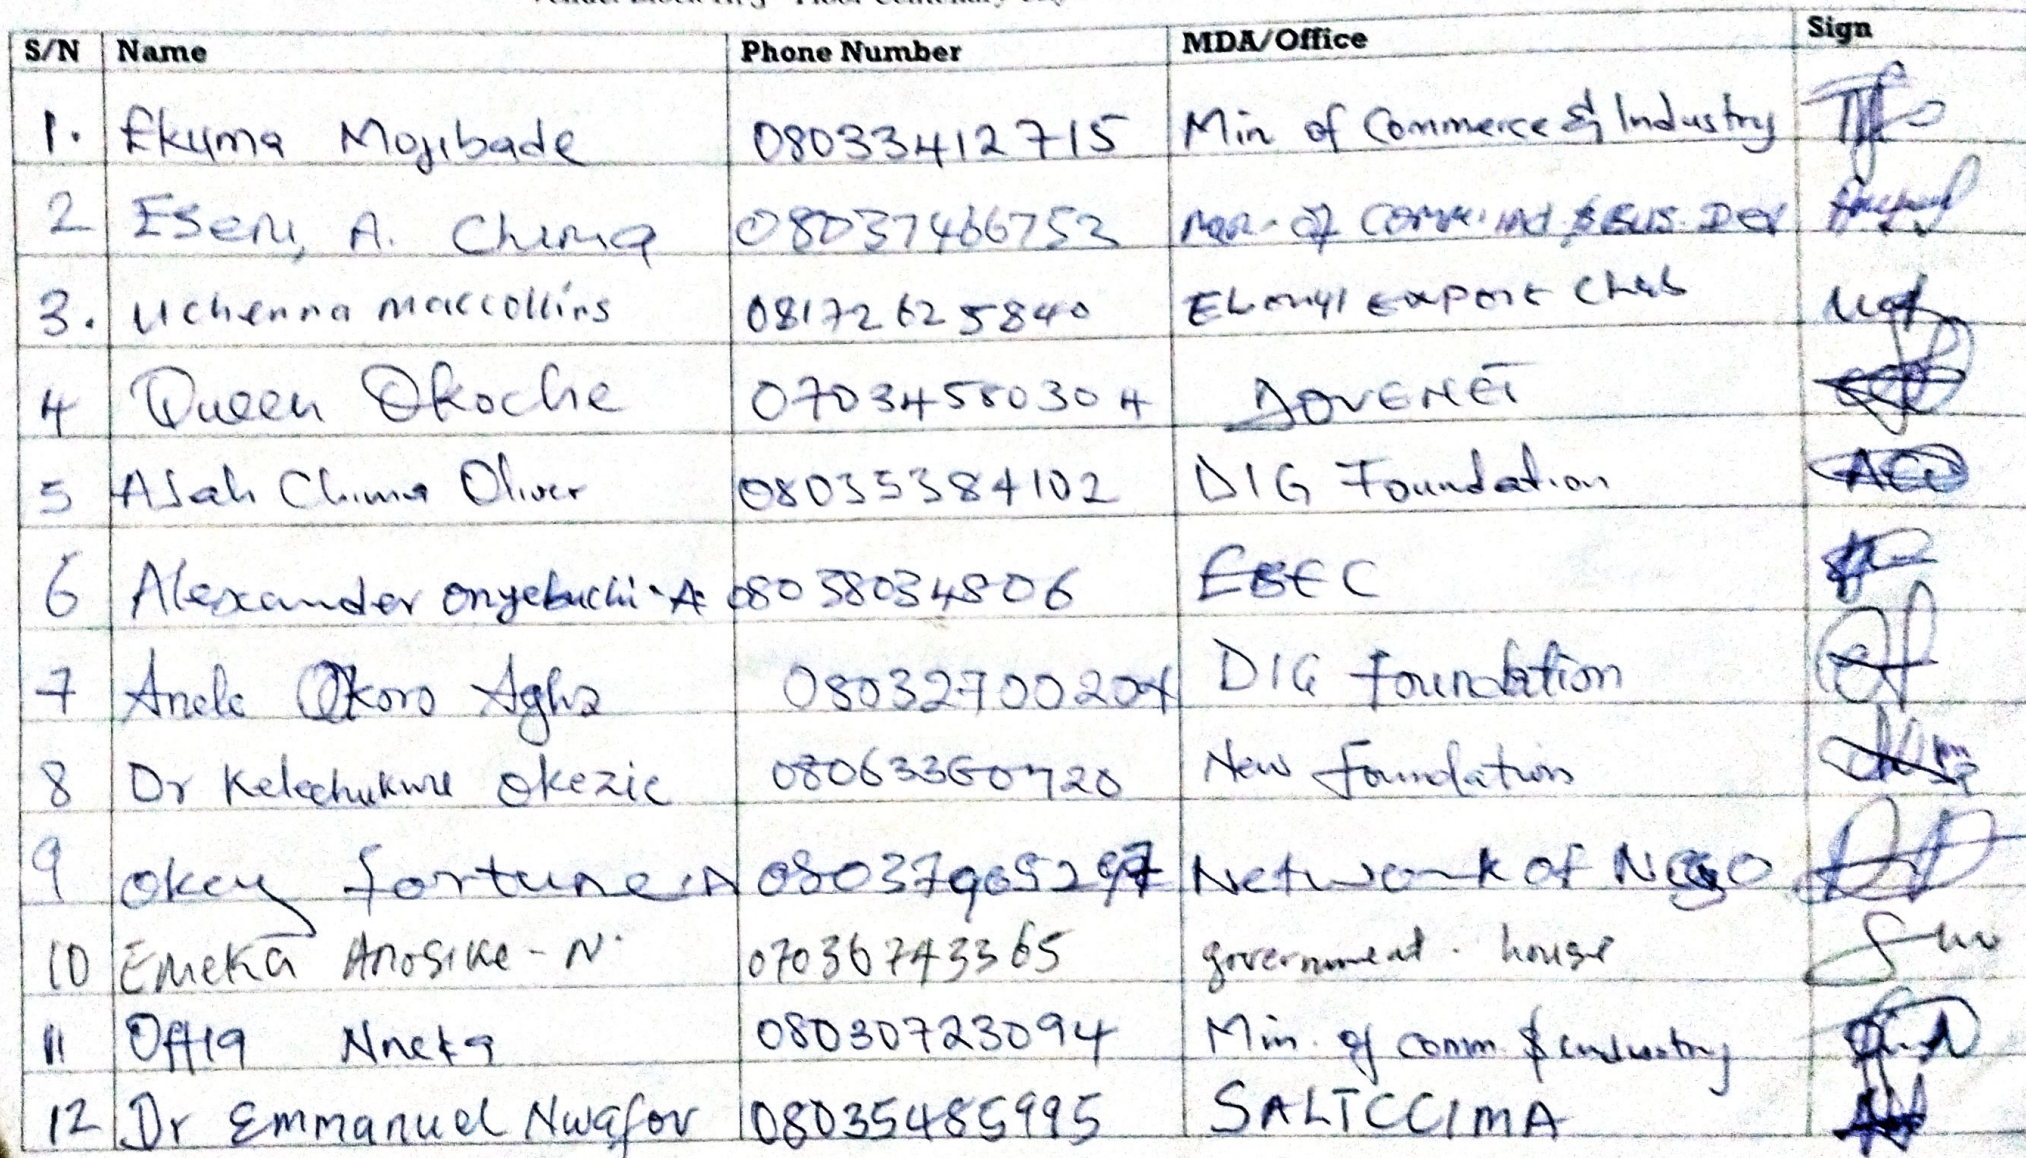 S/N Name Phone Number MDA/Office Sign
1. Ekuma Mojibade 08033412715 Min of Commerce & Industry
2 Eseni, A. Chima 08037466752 of Comm. ind & Bus. Dev
3. Uchenna Maccollins 08172625840 Ebonyi Export Club
4 Queen Okoche 07034580304 DOVENET
5 Asah Chima Oliver 08035384102 DIG Foundation
6 Alexander Onyebuchi A. 08038034806 EBEC
7 Anele Okoro Agha 08032700204 DIG Foundation
8 Dr Kelechukwu Okezie 08063360720 New Foundation
9 Okey Fortune .N Network of NGO
10 Emeka Anosike - N. 07036743365 government . house
11 Offia Nneka 08030723094 Min. of Comm. & industry
12 Dr Emmanuel Nwafor 08035485995 SALTCCIMA